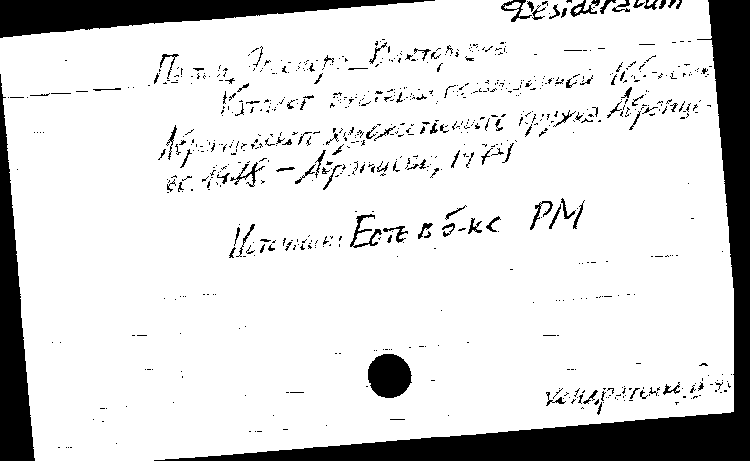 Desideratum
Викторовна
Каталог выставки, посвященной 100-летию
Абрамцевского художественного кружка. Абрамце-
во. 1978. – Абрамцево, 1978
Источник: Есть в б-ке РМ